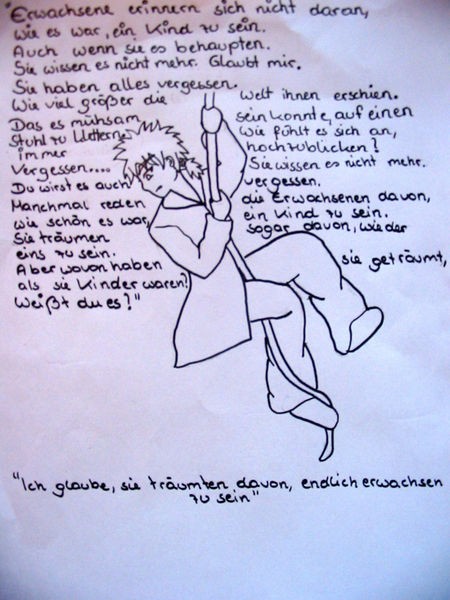 "Erwachsene erinnern sich nicht daran,
wie es war, ein Kind zu sein.
Auch wenn sie es behaupten.
Sie wissen es nicht mehr. Glaubt mir.
Sie haben alles vergessen.
Wie viel größer die Welt ihnen erschien.
Das es mühsam sein konnte, auf einen
Stuhl zu klettern. Wie fühlt es sich an,
immer hochzublicken?
Vergessen.... Sie wissen es nicht mehr.
Du wirst es auch vergessen.
Manchmal reden die Erwachsenen davon,
wie schön es war, ein Kind zu sein.
Sie träumen sogar davon, wieder
eins zu sein.
Aber wovon haben sie geträumt,
als sie Kinder waren?
Weißt du es?"
"Ich glaube, sie träumten davon, endlich erwachsen
zu sein"